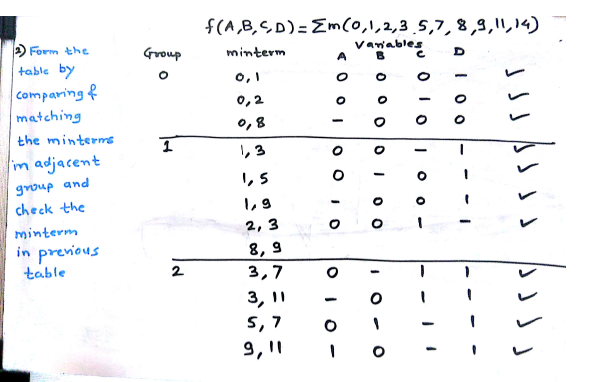 f(A,B,C,D)=Σm(0,1,2,3,5,7,8,9,11,14)
2) Form the table by comparing & matching the minterms in adjacent group and check the minterm in previous table
Group minterm Variables
A B C D
0 0,1 0 0 0 – ✓
0,2 0 0 – 0 ✓
0,8 – 0 0 0 ✓
1 1,3 0 0 – 1 ✓
1,5 0 – 0 1 ✓
1,9 – 0 0 1 ✓
2,3 0 0 1 – ✓
8,9
2 3,7 0 – 1 1 ✓
3,11 – 0 1 1 ✓
5,7 0 1 – 1 ✓
9,11 1 0 – 1 ✓